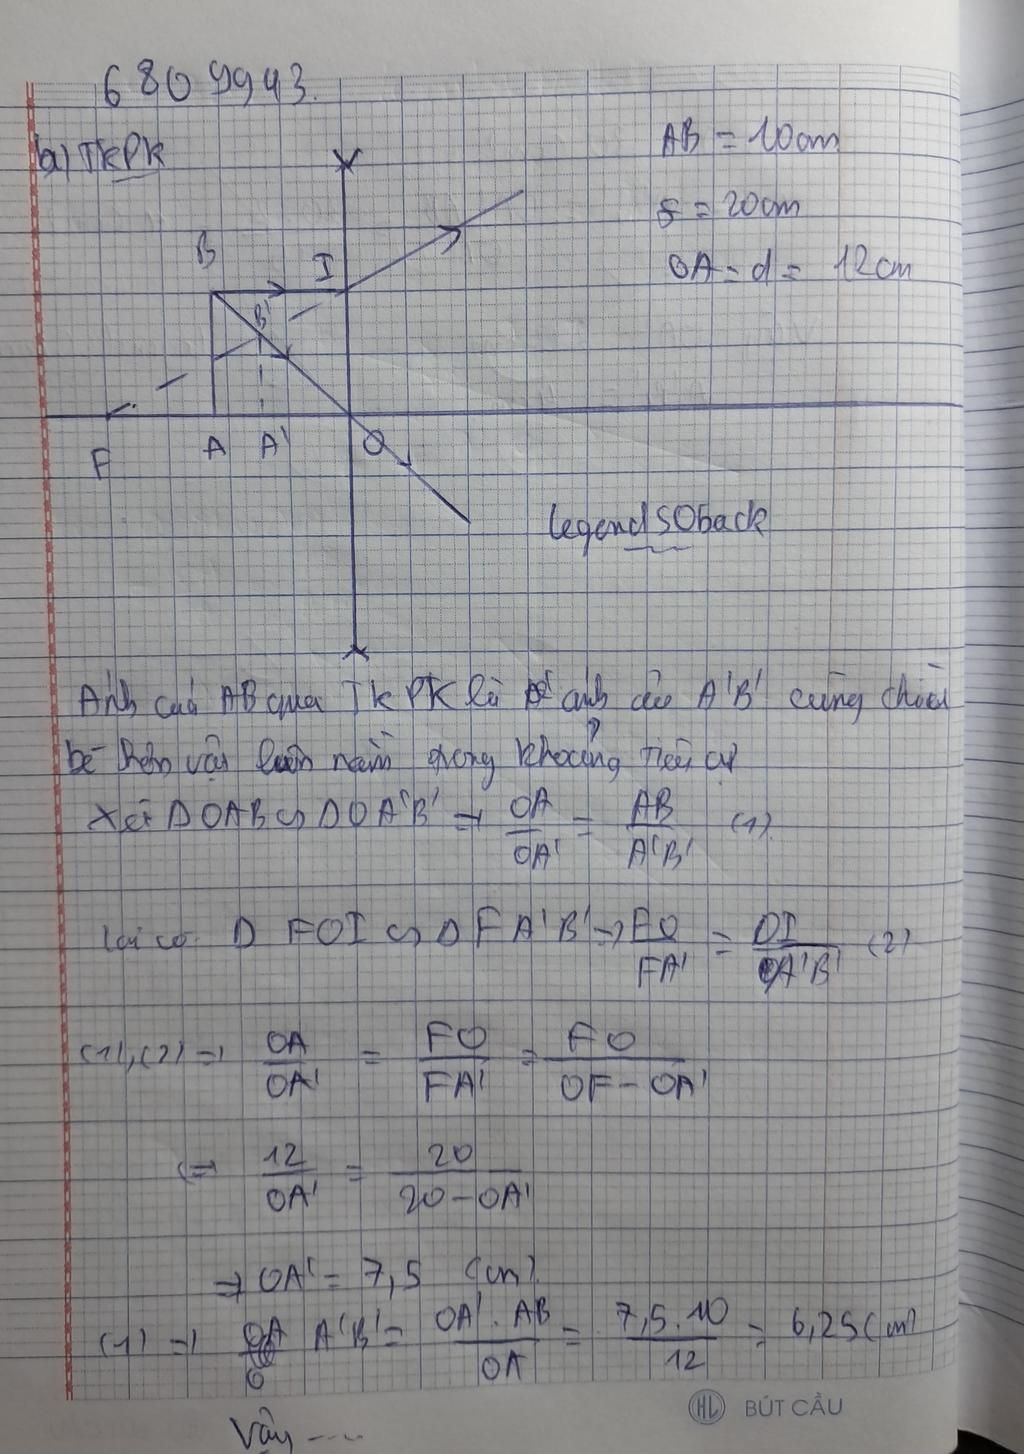 6809943.
b) TKPK
AB = 10cm
f = 20cm
OA = d = 12cm
B
I
B'
F
A
A'
O
legendSOback
Ảnh của AB qua TKPK là ảnh ảo A'B' cùng chiều
bé hơn vật luôn nằm trong khoảng tiêu cự
Xét Δ OAB ∽ Δ OA'B' → OA/OA' = AB/A'B' (1)
lại có Δ FOI ∽ Δ FA'B' → FO/FA' = OI/A'B' (2)
(1), (2) ⇒ OA/OA' = FO/FA' = FO/OF - OA'
⇔ 12/OA' = 20/20 - OA'
⇒ OA' = 7,5 (cm)
(1) ⇒ A'B' = OA' . AB/OA = 7,5 . 10/12 = 6,25 (cm)
Vậy ----
HL BÚT CẦU